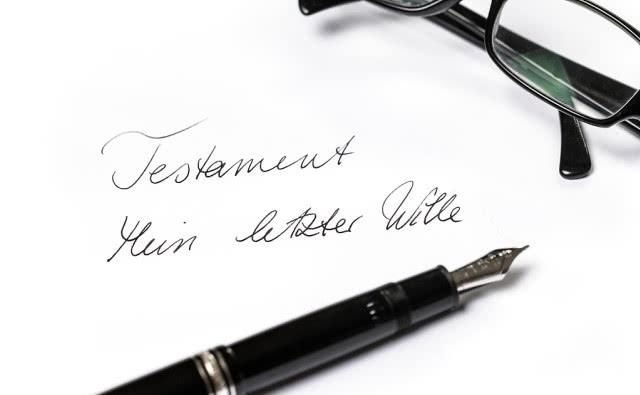 Testament
Mein letzter Wille